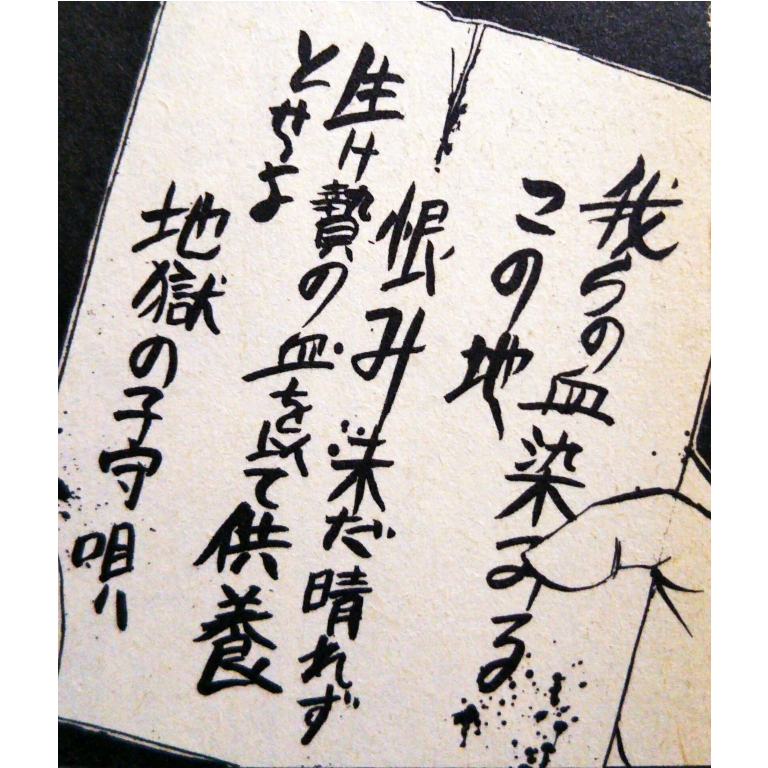 我らの血染みる
この地
恨み未だ晴れず
生け贄の血を以て供養
とせよ
地獄の子守唄